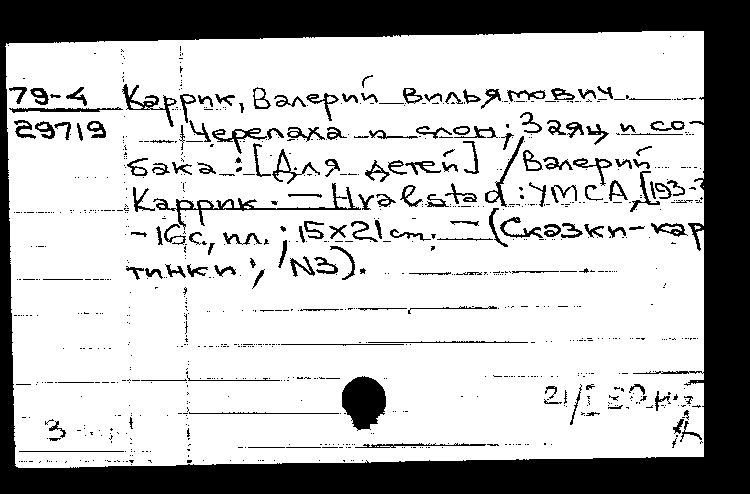 79-4 Каррик, Валерий Вильямович.
29719 Черепаха и слон; Заяц и со-
бака: [Для детей] / Валерий
Каррик. — Hvalstad: YMCA, [193-?
- 16 с., ил.; 15x21 cm. — (Сказки-кар
тинки; / N3).
21/I 80
3